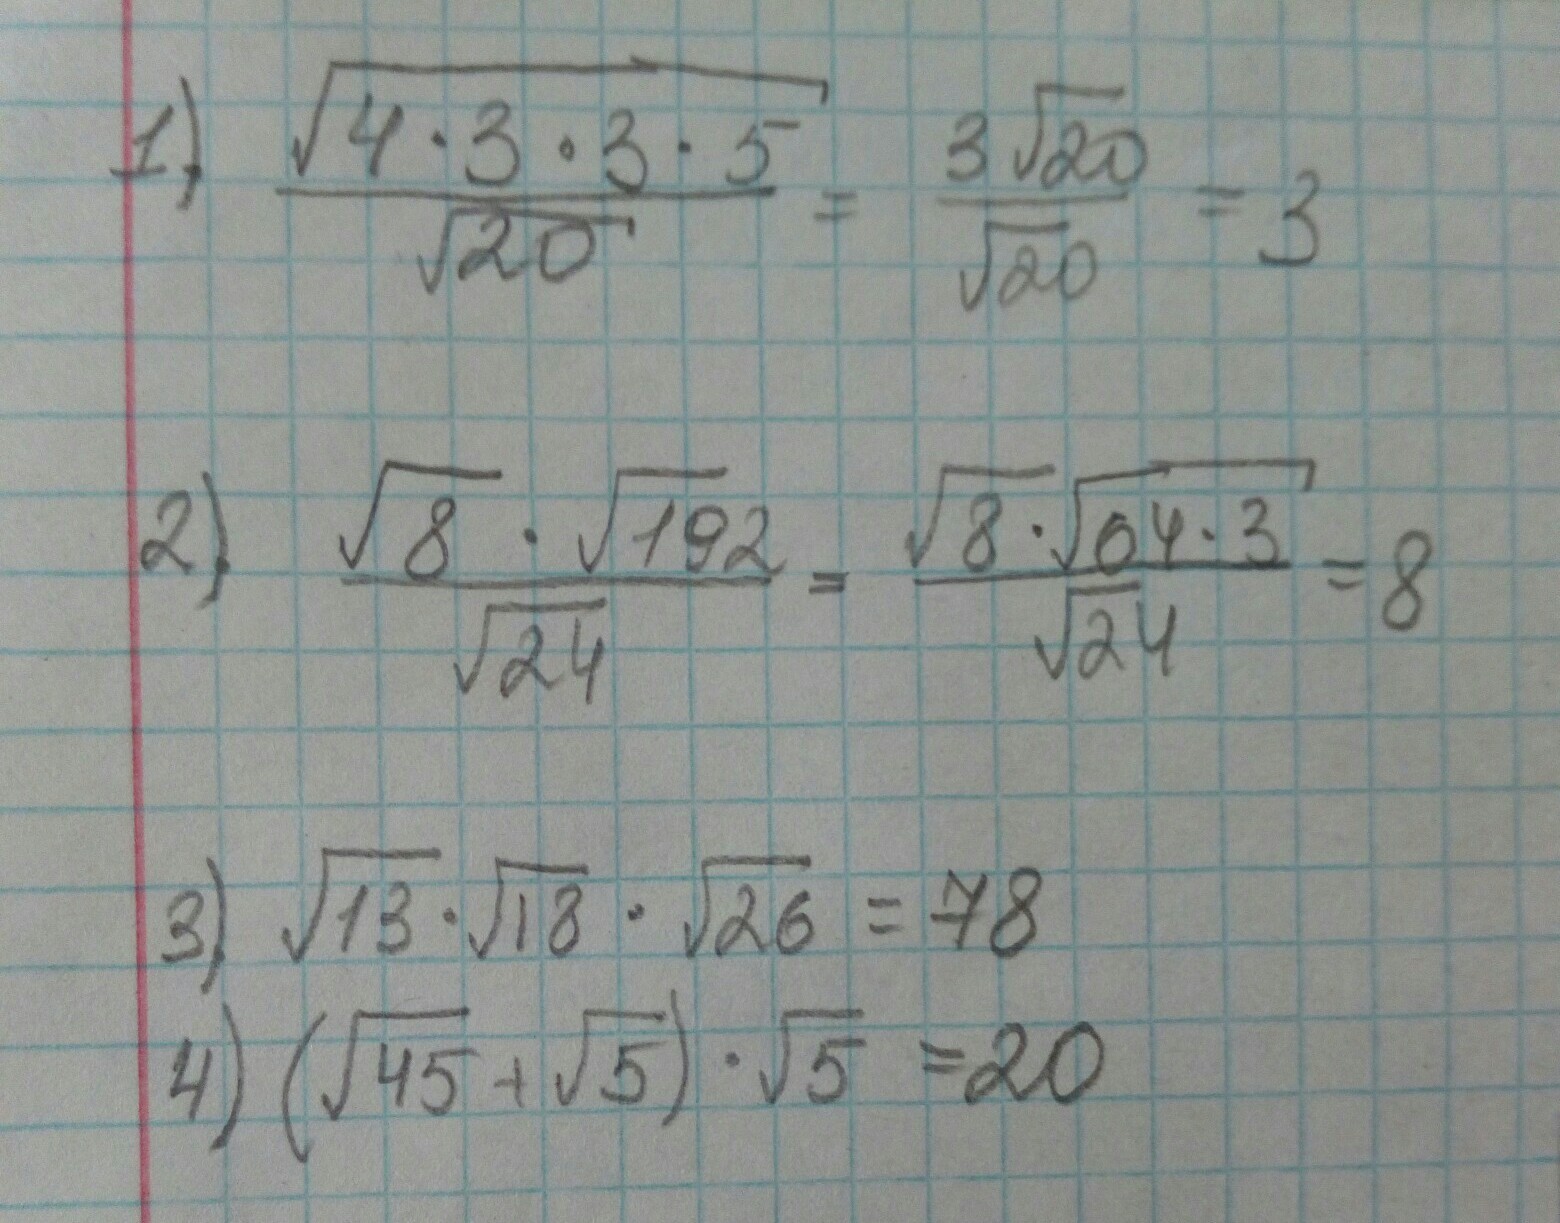 1) √(4·3·3·5) / √20 = 3√20 / √20 = 3
2) √8 · √192 / √24 = √8 · √(64·3) / √24 = 8
3) √13 · √18 · √26 = 78
4) (√45 + √5) · √5 = 20